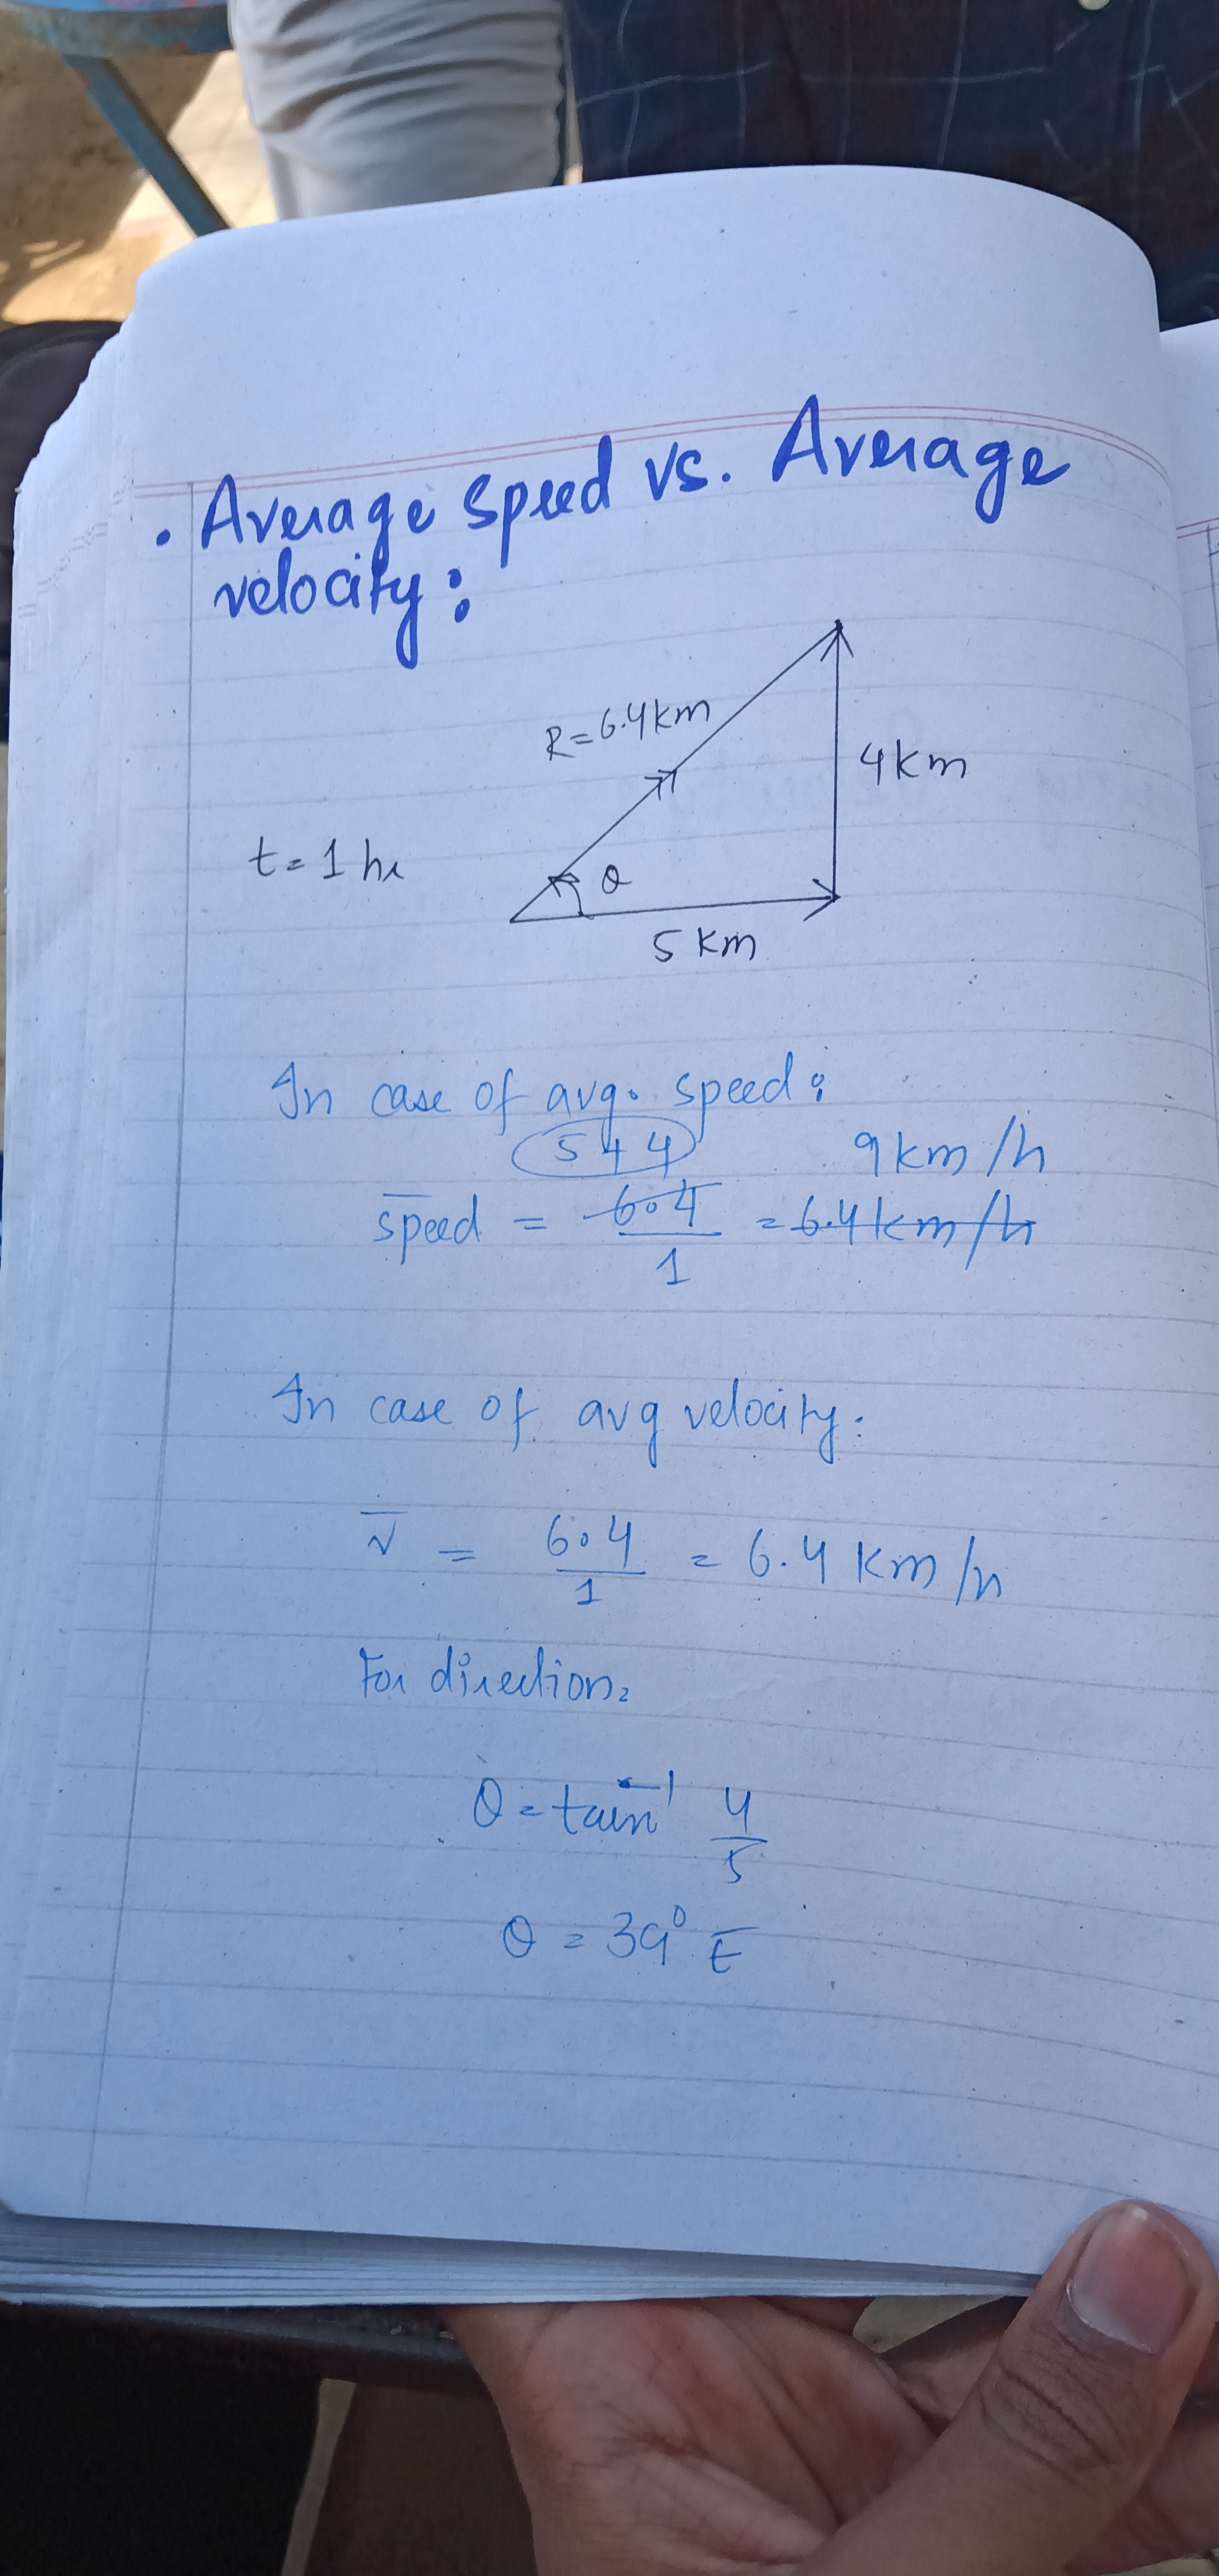 . Average speed vs. Average
velocity:
R=6.4km
4km
t=1 hr
θ
5 km
In case of avg. speed:
5+4
9km/h
speed = 6.4/1 = 6.4km/h
In case of avg velocity:
v̅ = 6.4/1 = 6.4 km/h
For direction:
θ = tan⁻¹ 4/5
θ = 39° E